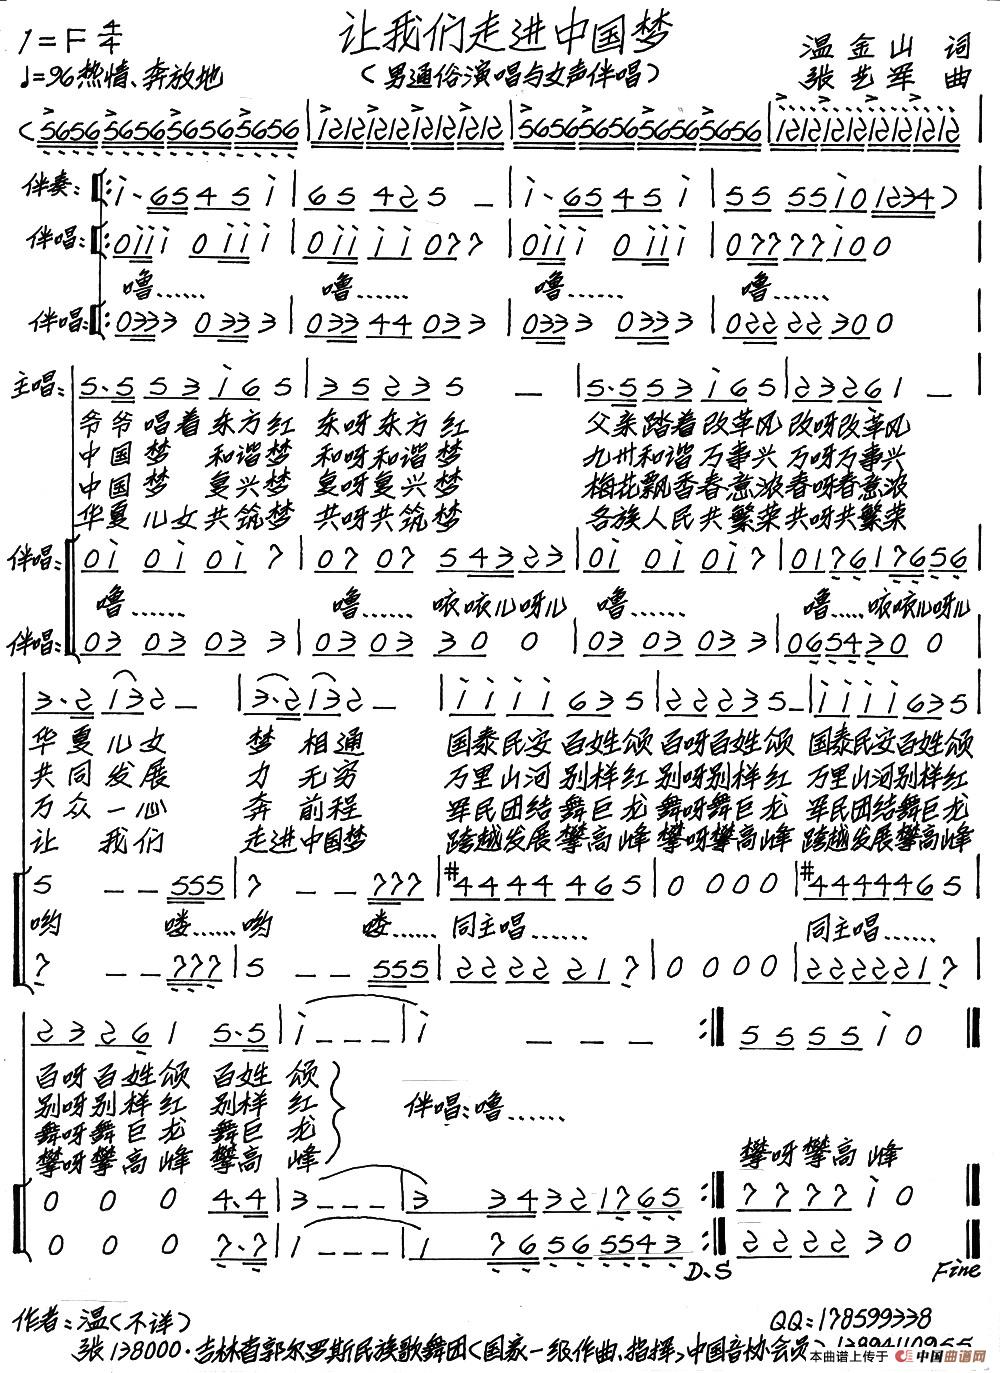 让我们走进中国梦
1=F 4/4
♩=96 热情、奔放地
(男通俗演唱与女声伴唱)
温金山 词
张艺军 曲
(5656 5656 5656 5656 | i2i2 i2i2 i2i2 i2i2 | 5656 5656 5656 5656 | i2i2 i2i2 i2i2 i2i2
伴奏: i·65 45 i | 65 425 – | i·65 45 i | 55 55 i0 1234)
伴唱: 0iii 0iii | 0iii i i 077 | 0iii 0iii | 07777 i00
噜…… 噜…… 噜…… 噜……
伴唱: 0333 0333 | 03344 033 | 0333 0333 | 02222 300
主唱: 5·5 53 i65 | 35 235 – | 5·5 53 i65 | 23 261 –
爷爷唱着东方红 东呀东方红 父亲踏着改革风 改呀改革风
中国梦 和谐梦 和呀和谐梦 九州和谐万事兴 万呀万事兴
中国梦 复兴梦 复呀复兴梦 梅花飘香春意浓 春呀春意浓
华夏儿女共筑梦 共呀共筑梦 各族人民共繁荣 共呀共繁荣
伴唱: 0i 0i 0i 7 | 07 07 54323 | 0i 0i 0i 7 | 0176 17656
噜…… 噜…… 咴咴儿呀儿 噜…… 噜…… 咴咴儿呀儿
伴唱: 03 03 03 3 | 03 03 30 0 | 03 03 03 3 | 065430 0
3·2 132 – | 3·2 132 – | i i i i 635 | 22 22 35 – | i i i i 635
华夏儿女 梦相通 国泰民安百姓颂 百呀百姓颂 国泰民安百姓颂
共同发展 力无穷 万里山河别样红 别呀别样红 万里山河别样红
万众一心 奔前程 军民团结舞巨龙 舞呀舞巨龙 军民团结舞巨龙
让我们 走进中国梦 跨越发展攀高峰 攀呀攀高峰 跨越发展攀高峰
5 – – 555 | 7 – – 777 | #44 44 465 | 0 0 0 0 | #44 44 465
哟 喽…… 哟 喽…… 同主唱…… 同主唱……
7 – – 777 | 5 – – 555 | 22 22 217 | 0 0 0 0 | 22 22 217
23 261 5·5 | i – – – | i – – – :‖ 55 55 i 0 ‖
百呀百姓颂 百姓颂
别呀别样红 别样红
舞呀舞巨龙 舞巨龙
攀呀攀高峰 攀高峰
伴唱:噜……
攀呀攀高峰
0 0 0 4·4 | 3 – – – | 3 34 32 17 65 :‖ 77 77 i 0 ‖
0 0 0 7·7 | 1 – – – | 1 76 56 55 43 :‖ 22 22 3 0 ‖
D.S
Fine
作者:温(不详)
QQ:178599338
张138000·吉林省郭尔罗斯民族歌舞团(国家一级作曲、指挥,中国音协会员)
本曲谱上传于 中国曲谱网